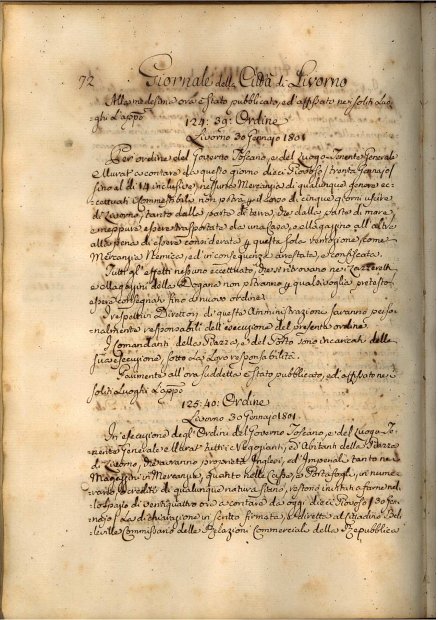 72 Giornale della Città di Livorno
Alla medesima ora è stato pubblicato, ed affissato nei soliti Luo-
ghi l'appo
129: 39: Ordine
Livorno 30 Gennajo 1801
Per ordine del Governo Toscano, e del Luogo-Tenente Generale
Murat a contare da questo giorno dieci Piovoso, trenta Gennajo
sino al dì 14 inclusive nessuna Mercanzia di qualunque genere ec-
cettuati Commestibili non potrà
di Livorno, tanto dalla parte di terra, che dalla parte di mare
e neppure essere trasportata da una Casa, o Magazzino all'altro
alla pena di essere considerata questa sola
Mercanzia Nemica, ed in conseguenza arrestata, e confiscata.
Tutti gl'effetti nessuno eccettuato, che si ritrovano nei
e Magazzini della Dogana non potranno qualsivoglia pretesto
essere consegnati fino a nuovo ordine.
I rispettivi Direttori di questa Amministrazione saranno perso-
nalmente responsabili dell'esecuzione del presente ordine.
I Comandanti della Piazza, e del Porto sono incaricati della
sua esecuzione, sotto la loro responsabilità.
Parimente all'ora suddetta è stato pubblicato, ed affissato nei
soliti Luoghi l'appo
125: 40: Ordine
Livorno 30 Gennajo 1801.
In esecuzione degl'Ordini del Governo Toscano, e del Luogo-Te-
nente Generale Murat tutti i Negozianti, ed Abitanti della Piazza
di Livorno, che avranno proprietà Inglesi, ed Imperiali tanto nei
Magazzini in Mercanzie, quanto nelle Casse, o Portafogli, in nume-
rario, o crediti di qualunque natura siano, restono invitati a farne nel-
lo spazio di ventiquattro ore a contare da oggi dieci Piovoso 30 Gen-
najo la dichiarazione in scritto firmata, e diretta al Cittadino Bel-
leville Commissario delle Relazioni Commerciali della Repubblica